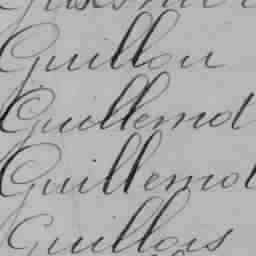 Guillou
Guillemot
Guillemot
Guillois